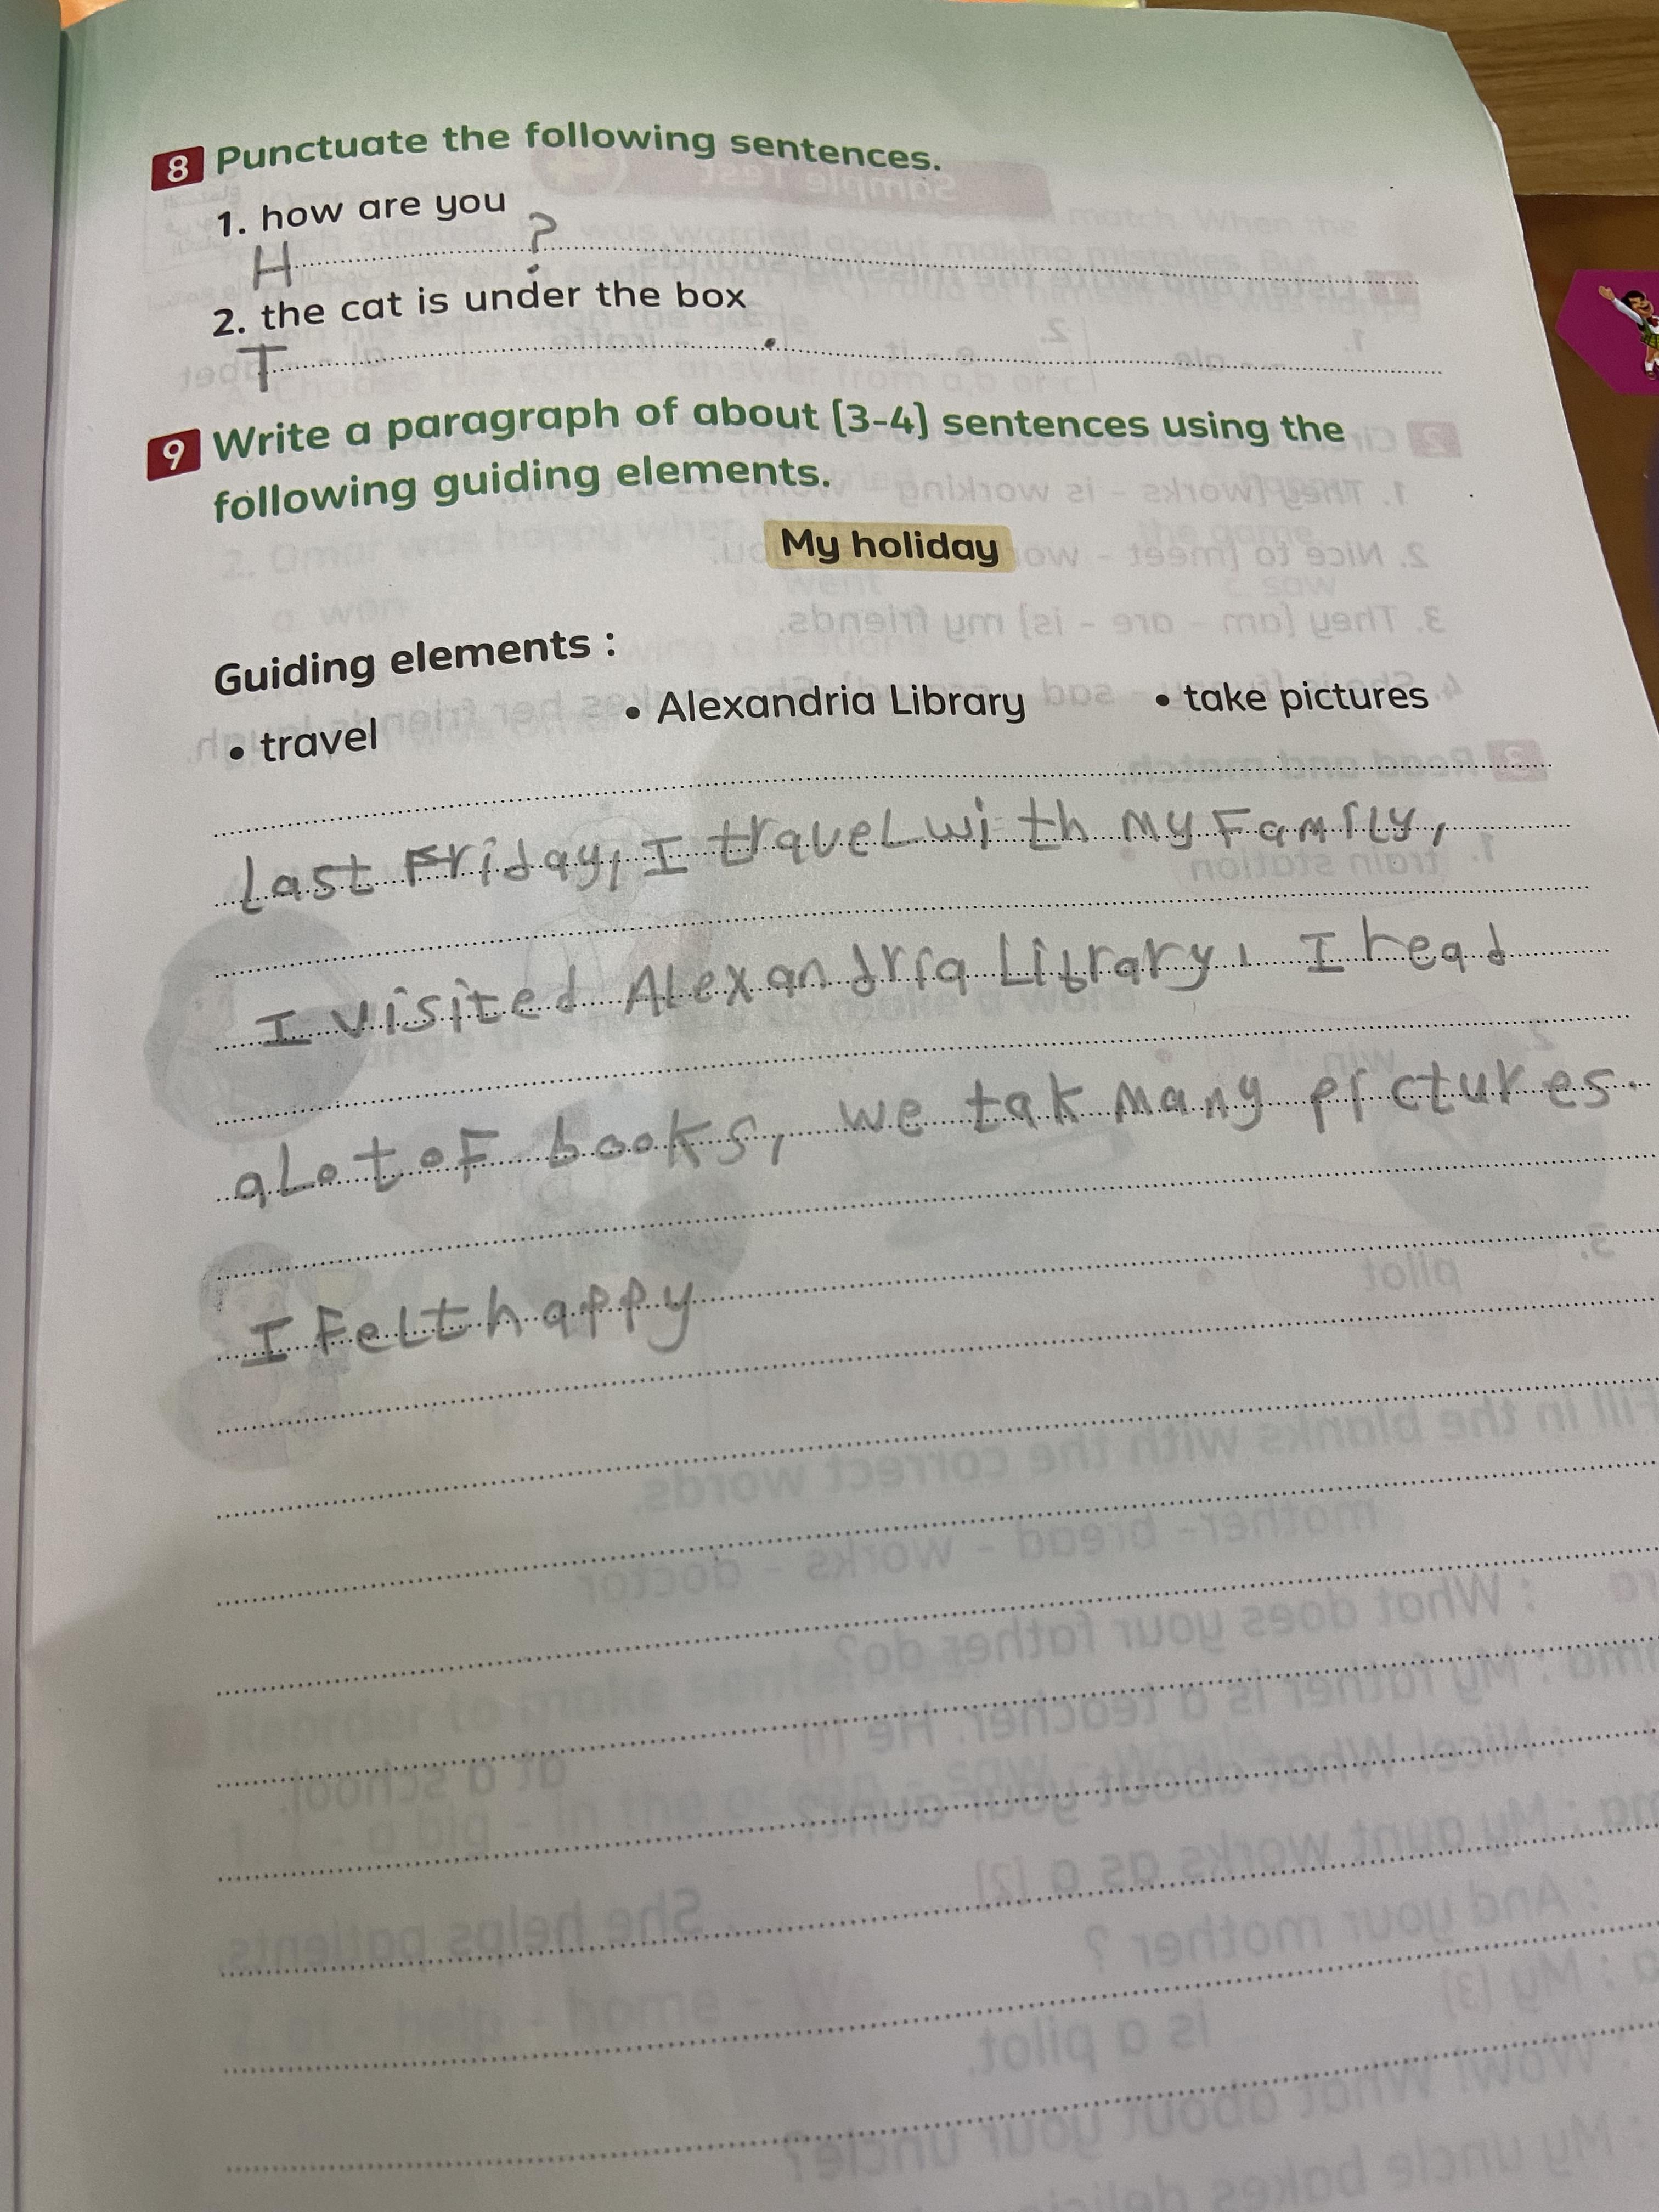 8 Punctuate the following sentences.
1. how are you
H ?
2. the cat is under the box
T .
9 Write a paragraph of about [3-4] sentences using the
following guiding elements.
My holiday
Guiding elements :
• travel • Alexandria Library • take pictures
Last Friday, I travel with my Family,
I visited Alexandria Library, I read
a lot of books, we tak many pictures.
I Felt happy